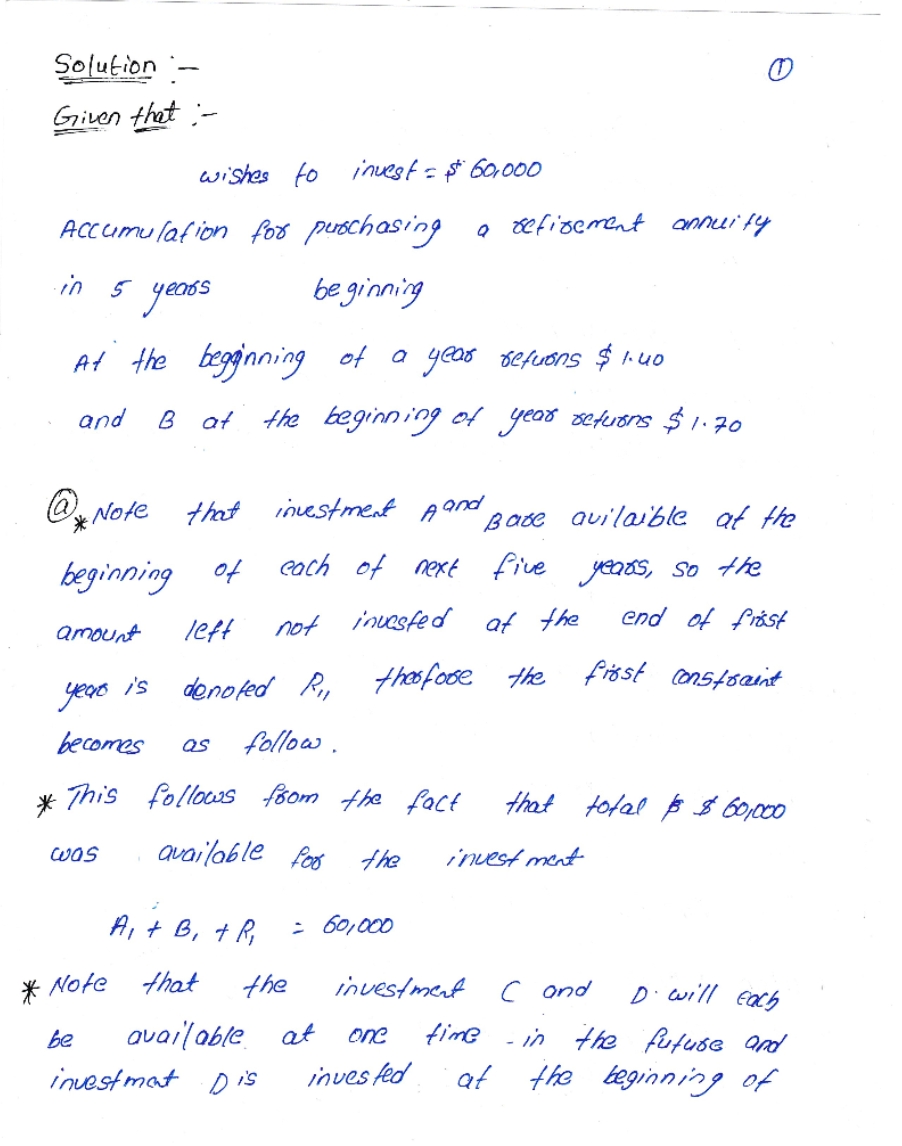 Solution :-
①
Given that :-
wishes to invest = $ 60,000
Accumulation for purchasing a retirement annuity
in 5 years beginning
At the begginning of a year returns $ 1.40
and B at the beginning of year returns $ 1.70
ⓐ * Note that investment A and B are avilaible at the
beginning of each of next five years, so the
amount left not invested at the end of first
year is denoted R₁, therfore the first constraint
becomes as follow.
* This follows from the fact that total $ 60,000
was available for the investment
A₁ + B₁ + R₁ = 60,000
* Note that the investment C and D will each
be available at one time - in the future and
investmat D is invested at the beginning of